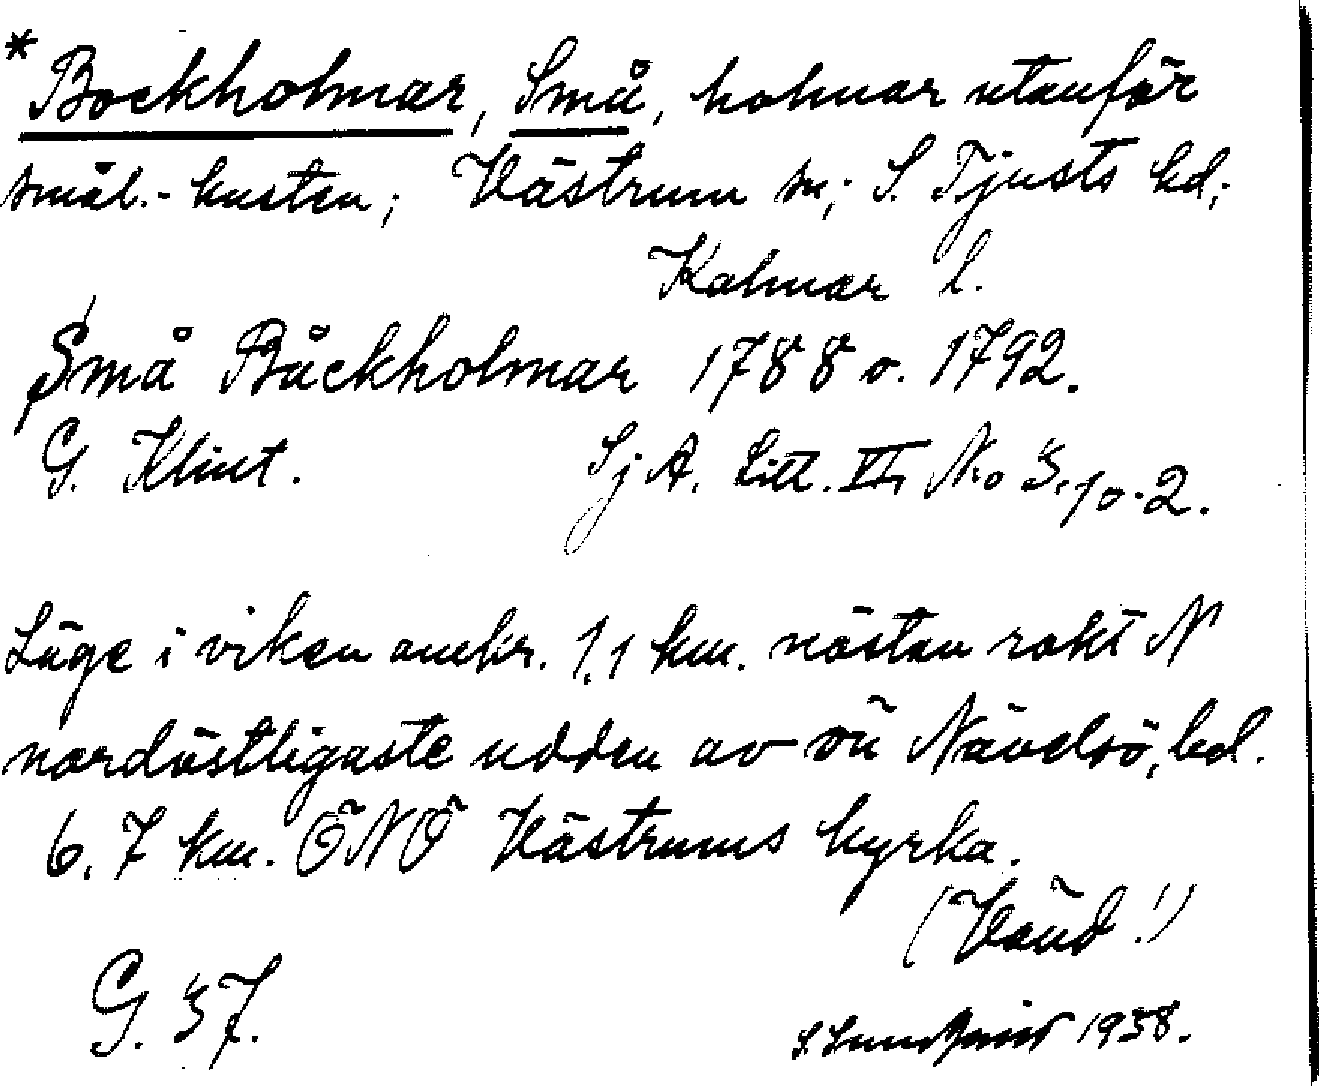 * Bockholmar, Små, holmar utanför
smål.-kusten; Västrum sn; S. Tjusts hd;
Kalmar l.
Små Båckholmar 1788 o. 1792.
G. Klint. SjA. Litt. VI, No 3, 10.2.
Läge i viken omkr. 1,1 km. nästan rakt N
nordöstligaste udden av ön Nävelsö, bel.
6.7 km. ÖNÖ Västrums kyrka.
(Vänd!)
G. 37.
1938.